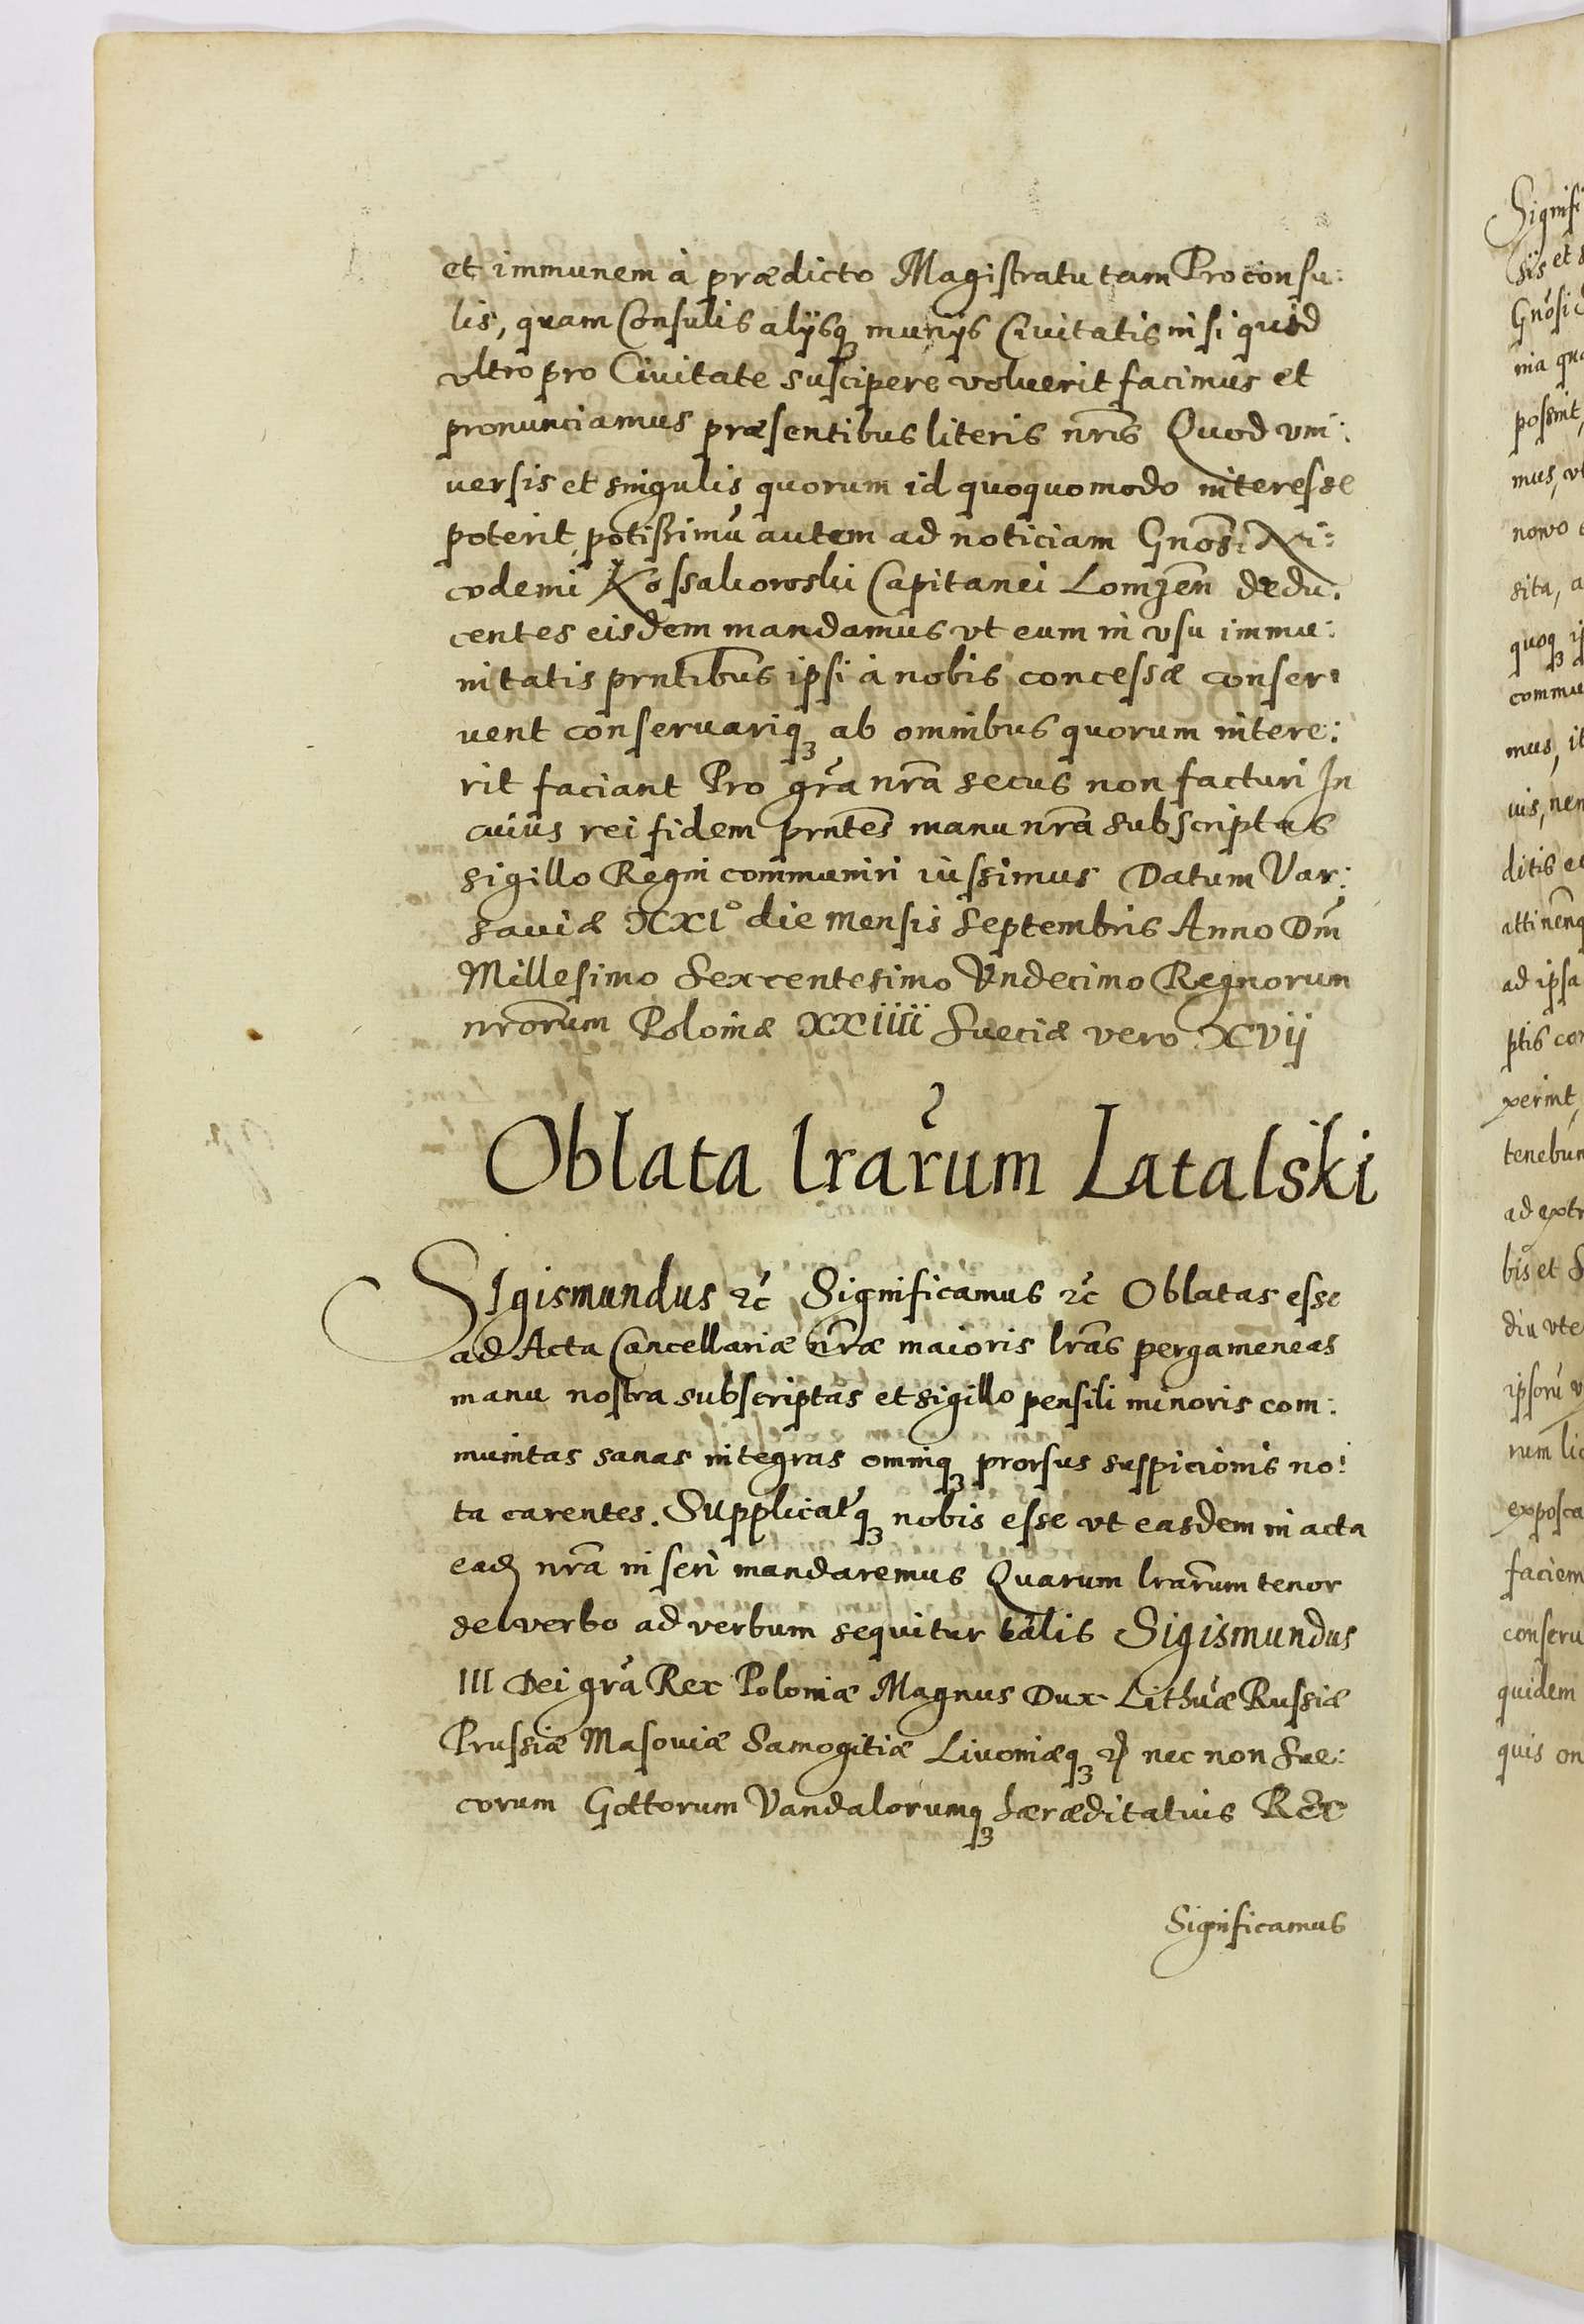 et immunem à prædicto Magistratu tam Proconsu:
lis, quam Consulis alijsq₃ munijs Ciuitatis nisi quid
vltro pro Ciuitate suscipere voluerit facimus et
pronunciamus præsentibus literis nr̃is Quod vni:
uersis et singulis quorum id quoquomodo interesse
poterit, potissimũ autem ad noticiam Gnosi Ni:
codemi Kossakowski Capitanei Lomzeñ dedu:
centes eisdem mandamus vt eum in vsu immu:
nitatis prñtibus ipsi à nobis concessæ conser:
uent conseruariq₃ ab omnibus quorum intere:
rit faciant Pro gr̃a nr̃a secus non facturi In
cuius rei fidem prñtes manu nr̃a subscriptas
sigillo Regni communiri iussimus Datum Var:
sauiæ XXIº die mensis Septembris Anno Dñi
Millesimo Sexcentesimo Vndecimo Regnorum
nrõrum Poloniæ XXIIII Sueciæ vero XVij
Oblata lrarum Latalski
SIgismundus &c̃ Significamus &c̃ Oblatas esse
ad Acta Cancellariæ nr̃æ maioris lr̃as pergameneas
manu nostra subscriptas et sigillo pensili minoris com:
munitas sanas integras omniq₃ prorsus suspicionis no:
ta carentes. Supplicatq₃ nobis esse vt easdem in acta
ead nr̃a inseri mandaremus Quarum lrãrum tenor
de verbo ad verbum sequitur talis Sigismundus
III Dei gr̃a Rex Poloniæ Magnus Dux Lithuæ Russiæ
Prussiæ Masouiæ Samogitiæ Liuoniæq₃ & nec non Sue:
corum Gottorum Vandalorumq₃ hæræditarius Rex
Significamus
Signifi
sis et s
Gnosi
nia qua
possint,
mus, vt
nowo
sita, a
quoq₃ ip
commu
mus, it
uis, nem
ditis et
attinenq
ad ipsa
ptis con
xerint,
tenebun
ad extr
bis et S
diu vte
ipsorũ v
rum lic
exposca
faciem
conseru
quidem
quis on